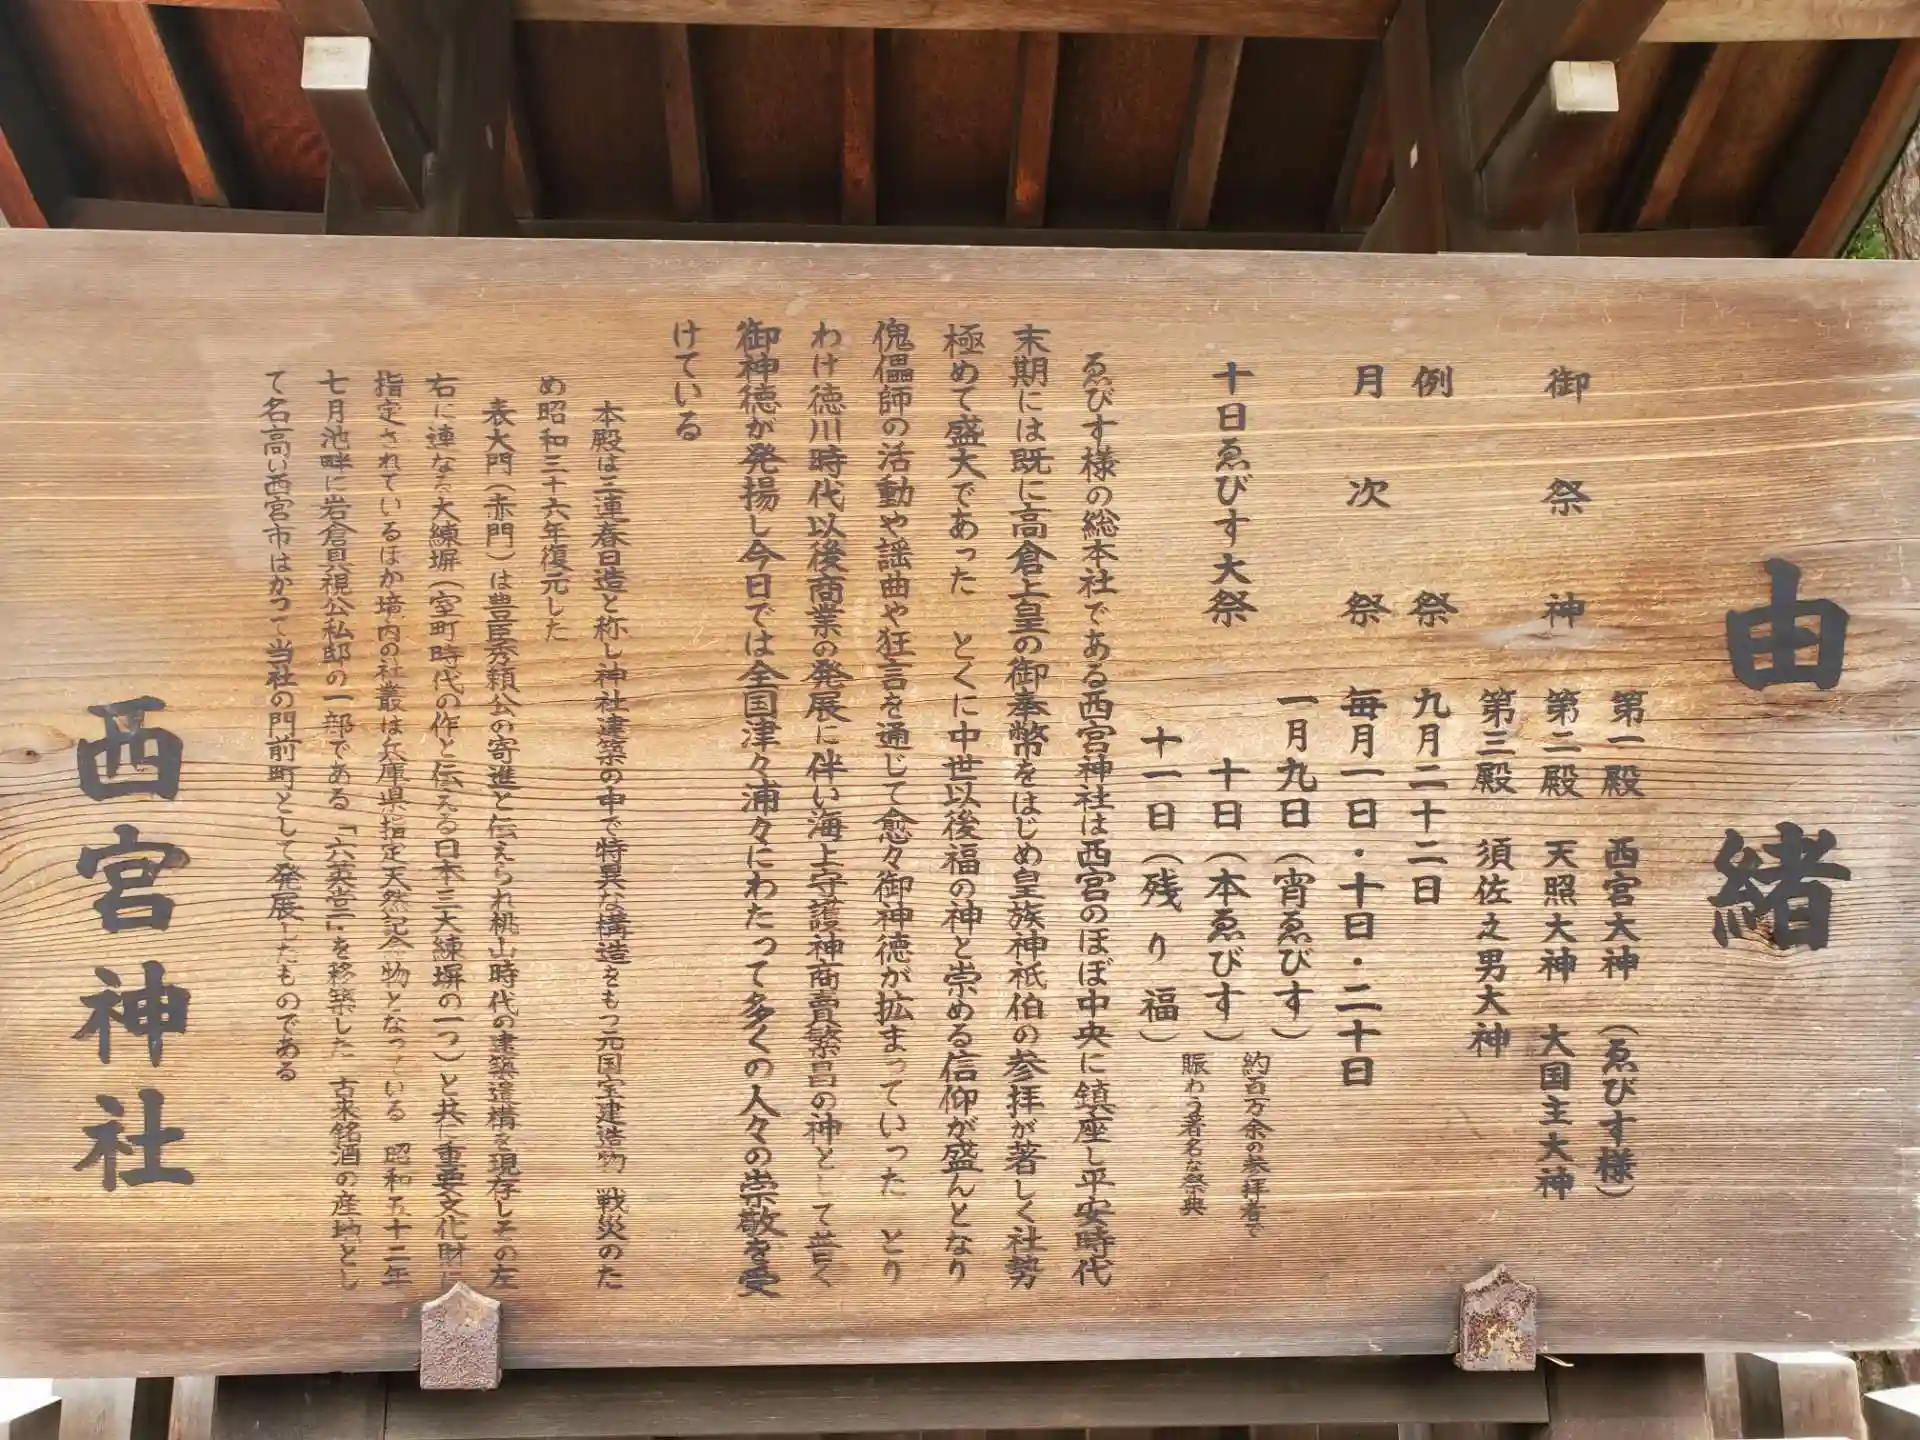 由緒
御祭神 第一殿 西宮大神 (ゑびす様)
第二殿 天照大神 大国主大神
第三殿 須佐之男大神
例祭 九月二十二日
月次祭 毎月一日・十日・二十日
十日ゑびす大祭 一月九日(宵ゑびす)
十日(本ゑびす)
十一日(残り福)
約百万余の参拝者で
賑わう著名な祭典
ゑびす様の総本社である西宮神社は西宮のほぼ中央に鎮座し平安時代
末期には既に高倉上皇の御奉幣をはじめ皇族神祇伯の参拝が著しく社勢
極めて盛大であった とくに中世以後福の神と崇める信仰が盛んとなり
傀儡師の活動や謡曲や狂言を通じて愈々御神徳が拡まっていった とり
わけ徳川時代以後商業の発展に伴い海上守護神商賣繁昌の神として普く
御神徳が発揚し今日では全国津々浦々にわたって多くの人々の崇敬を受
けている
本殿は三連春日造と称し神社建築の中で特異な構造をもつ元国宝建造物 戦災のた
め昭和三十六年復元した
表大門(赤門)は豊臣秀頼公の寄進と伝えられ桃山時代の建築遺構を現存しその左
右に連なる大練塀(室町時代の作と伝える日本三大練塀の一つ)と共に重要文化財に
指定されているほか境内の社叢は兵庫県指定天然記念物となっている 昭和五十二年
七月池畔に岩倉具視公私邸の一部である「六英堂」を移築した 古来銘酒の産地とし
て名高い西宮市はかつて当社の門前町として発展したものである
西宮神社